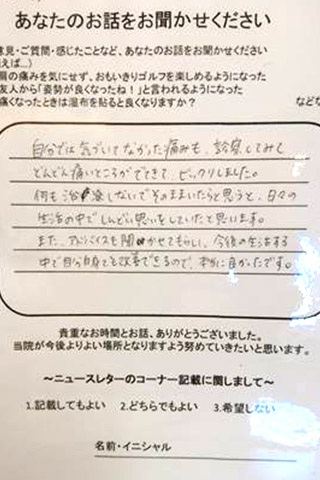 あなたのお話をお聞かせください
意見・ご質問・感じたことなど、あなたのお話をお聞かせください
えば…)
肩の痛みを気にせず、おもいきりゴルフを楽しめるようになった
友人から「姿勢が良くなったね!」と言われるようになった
痛くなったときは湿布を貼ると良くなりますか? など
自分では気づいてなかった痛みも、診察してみて
どんどん痛いところがでてきて、ビックリしました。
何も治療しないでそのままいたらと思うと、日々の
生活の中でしんどい思いをしていたと思います。
また、アドバイスも聞かせてもらい、今後の生活する
中で自分自身でも改善できるので、本当に良かったです。
貴重なお時間とお話、ありがとうございました。
当院が今後よりよい場所となりますよう努めていきたいと思います。
〜ニュースレターのコーナー記載に関しまして〜
1.記載してもよい 2.どちらでもよい 3.希望しない
名前・イニシャル